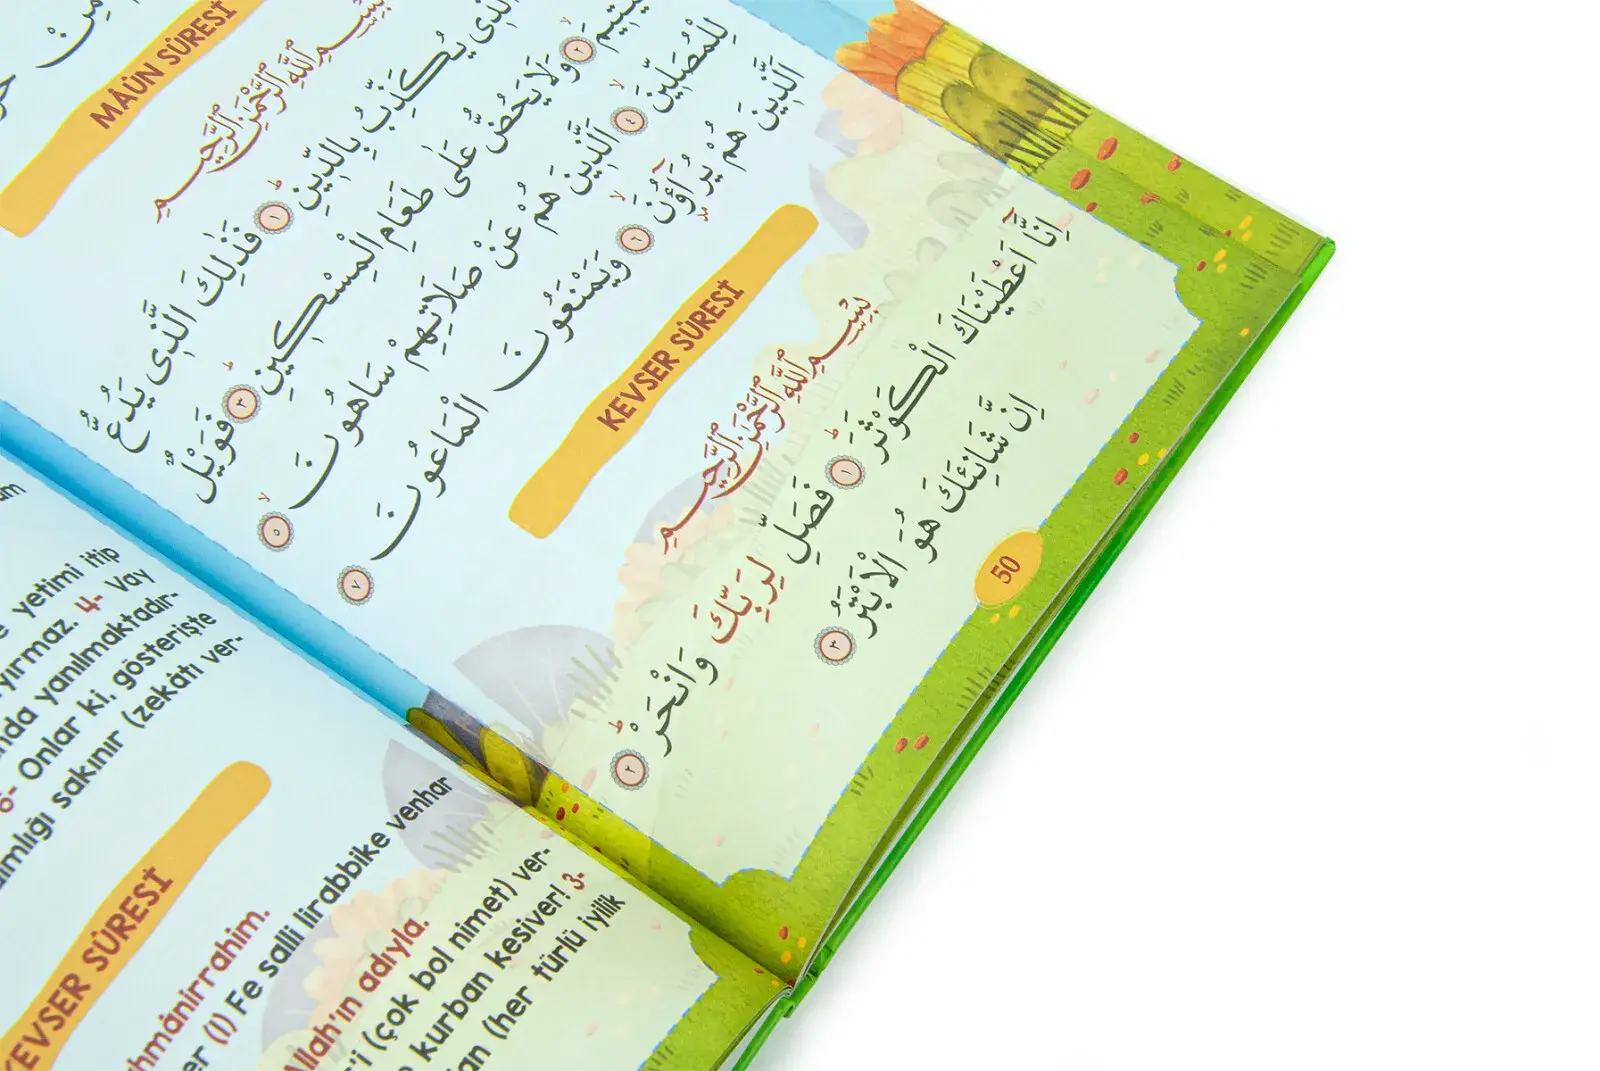 مِنْ
MÂÛN SÛRESİ
بِسْمِ اللّٰهِ الرَّحْمٰنِ الرَّحٖيمِ
يُكَذِّبُ بِالدّٖينِ ﴿١﴾ فَذٰلِكَ الَّذٖى يَدُعُّ
﴿٢﴾ وَلَا يَحُضُّ عَلٰى طَعَامِ الْمِسْكٖينِ ﴿٣﴾ فَوَيْلٌ
لِلْمُصَلّٖينَ ﴿٤﴾ اَلَّذٖينَ هُمْ عَنْ صَلَاتِهِمْ سَاهُونَ ﴿٥﴾
اَلَّذٖينَ هُمْ يُرَٓاؤُنَ ﴿٦﴾ وَيَمْنَعُونَ الْمَاعُونَ ﴿٧﴾
KEVSER SÛRESİ
بِسْمِ اللّٰهِ الرَّحْمٰنِ الرَّحٖيمِ
اِنَّٓا اَعْطَيْنَاكَ الْكَوْثَرَ ﴿١﴾ فَصَلِّ لِرَبِّكَ وَانْحَرْ ﴿٢﴾
اِنَّ شَانِئَكَ هُوَ الْاَبْتَرُ ﴿٣﴾
50
yetimi itip
yırmaz. 4- Vay
nda yanılmaktadır-
6- Onlar ki, gösterişte
sakınır (zekâtı ver-
KEVSER SÛRESİ
hmânirrahim.
er (1) Fe salli lirabbike venhar
Allah'ın adıyla.
'i (çok bol nimet) ver-
kurban kesiver! 3-
lan (her türlü iyilik